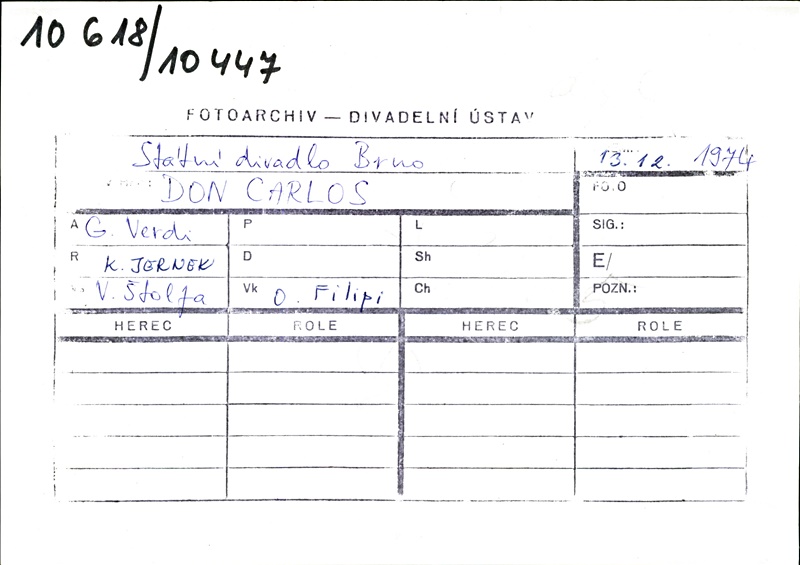 10 618/10 447
FOTOARCHIV — DIVADELNÍ ÚSTAV
Státní divadlo Brno 13. 12. 1974
DON CARLOS FOTO
A G. Verdi P L SIG.:
R K. JERNEK D Sh E/
V. Štolfa Vk O. Filipi Ch POZN.:
HEREC ROLE HEREC ROLE